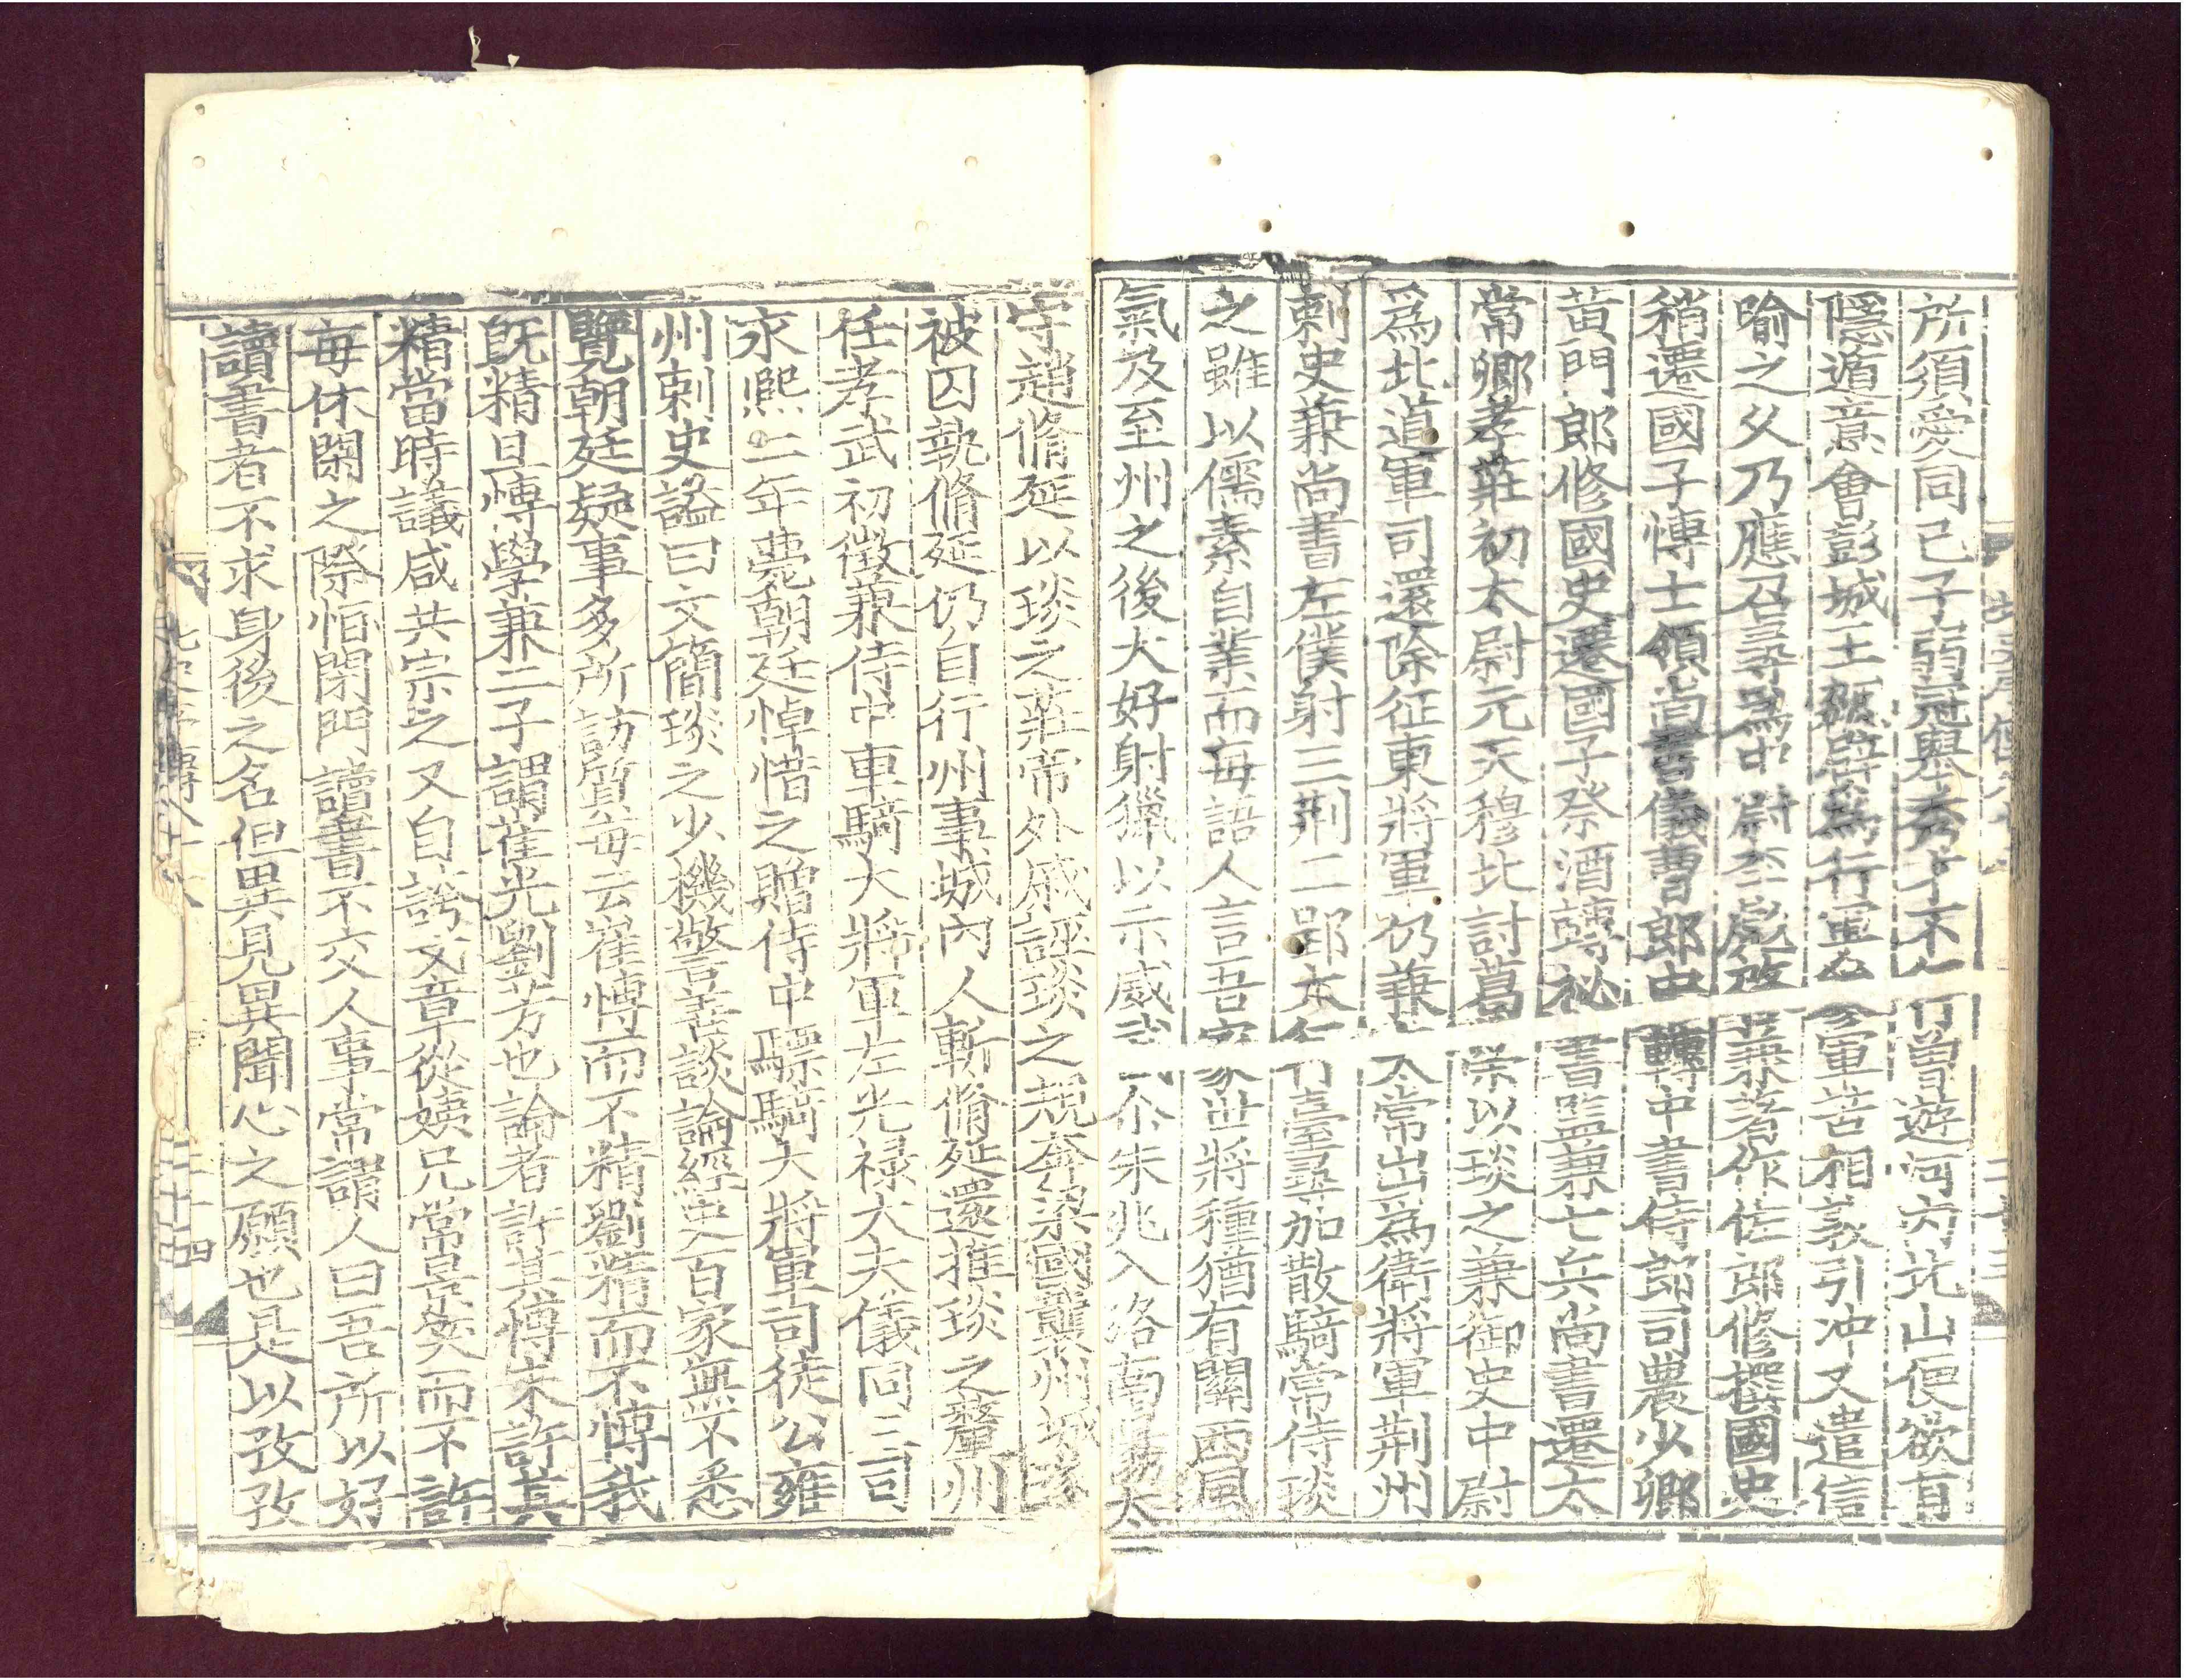 所須愛同己子弱冠舉秀才不行曾遊河內北山便欲有
隱遁意會彭城王勰辟為行軍參軍苦相敦引冲又遣信
喻之久乃應召尋為中尉李彪啟兼著作佐郎修撰國史
稍遷國子博士領尚書儀曹郎中轉中書侍郎司農少卿
黃門郎修國史遷國子祭酒轉祕書監兼七兵尚書遷太
常卿孝莊初太尉元天穆北討葛榮以琰之兼御史中尉
爲北道軍司還除征東將軍仍兼太常出爲衛將軍荊州
刺史兼尚書左僕射三荊二郢大行臺尋加散騎常侍琰
之雖以儒素自業而每語人言吾家世將種猶有關西風
氣及至州之後大好射獵以示威武尒朱兆入洛南陽太
守趙脩延以琰之莊帝外戚誣琰之規奔梁國襲州城遂
被囚執脩延仍自行州事城內人斬脩延還推琰之釐州
任孝武初徵兼侍中車騎大將軍左光祿大夫儀同三司
永熙二年薨朝廷悼惜之贈侍中驃騎大將軍司徒公雍
州刺史諡曰文簡琰之少機警善談論經史百家無不悉
覽朝廷疑事多所訪質每云崔博而不精劉精而不博我
旣精且博學兼二子謂崔光劉芳也論者許其博未許其
精當時議咸共宗之又自誇文章從姨兄常景笑而不許
每休閑之際恒閉門讀書不交人事常謂人曰吾所以好
讀書者不求身後之名但異見異聞心之願也是以孜孜
北史列傳八十八
二十四